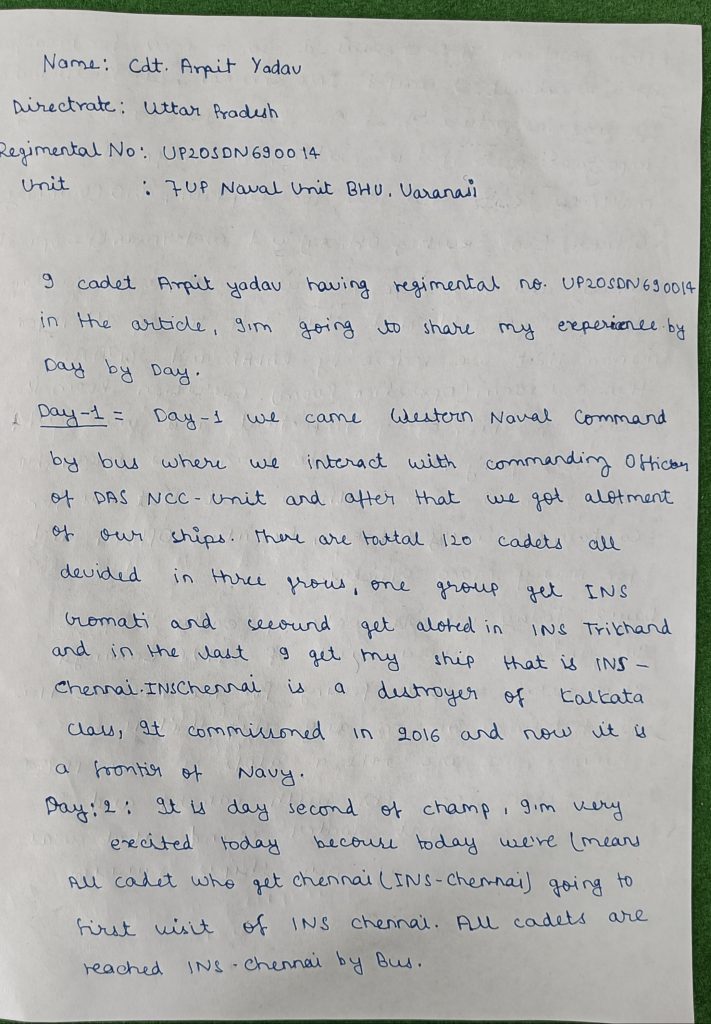 Name: Cdt. Arpit Yadav
Directrate: Uttar Pradesh
Regimental No: UP20SDN690014
Unit : 7UP Naval Unit BHU, Varanasi
I cadet Arpit yadav having regimental no. UP20SDN690014
in the article, I'm going to share my experience by
Day by Day.
Day-1 = Day-1 we came Western Naval Command
by bus where we interact with commanding Officer
of DAS NCC-Unit and after that we got alotment
of our ships. There are tottal 120 cadets all
devided in three grous, one group get INS
Gromati and seeound get aloted in INS Trikhand
and in the last I get my ship that is INS-
Chennai. INSChennai is a destroyer of Kalkata
class, It commissioned in 2016 and now it is
a frontir of Navy.
Day:2: It is day second of champ, I'm very
excited today becouse today we're (means
All cadet who get chennai (INS-Chennai) going to
first visit of INS chennai. All cadets are
reached INS-Chennai by Bus.